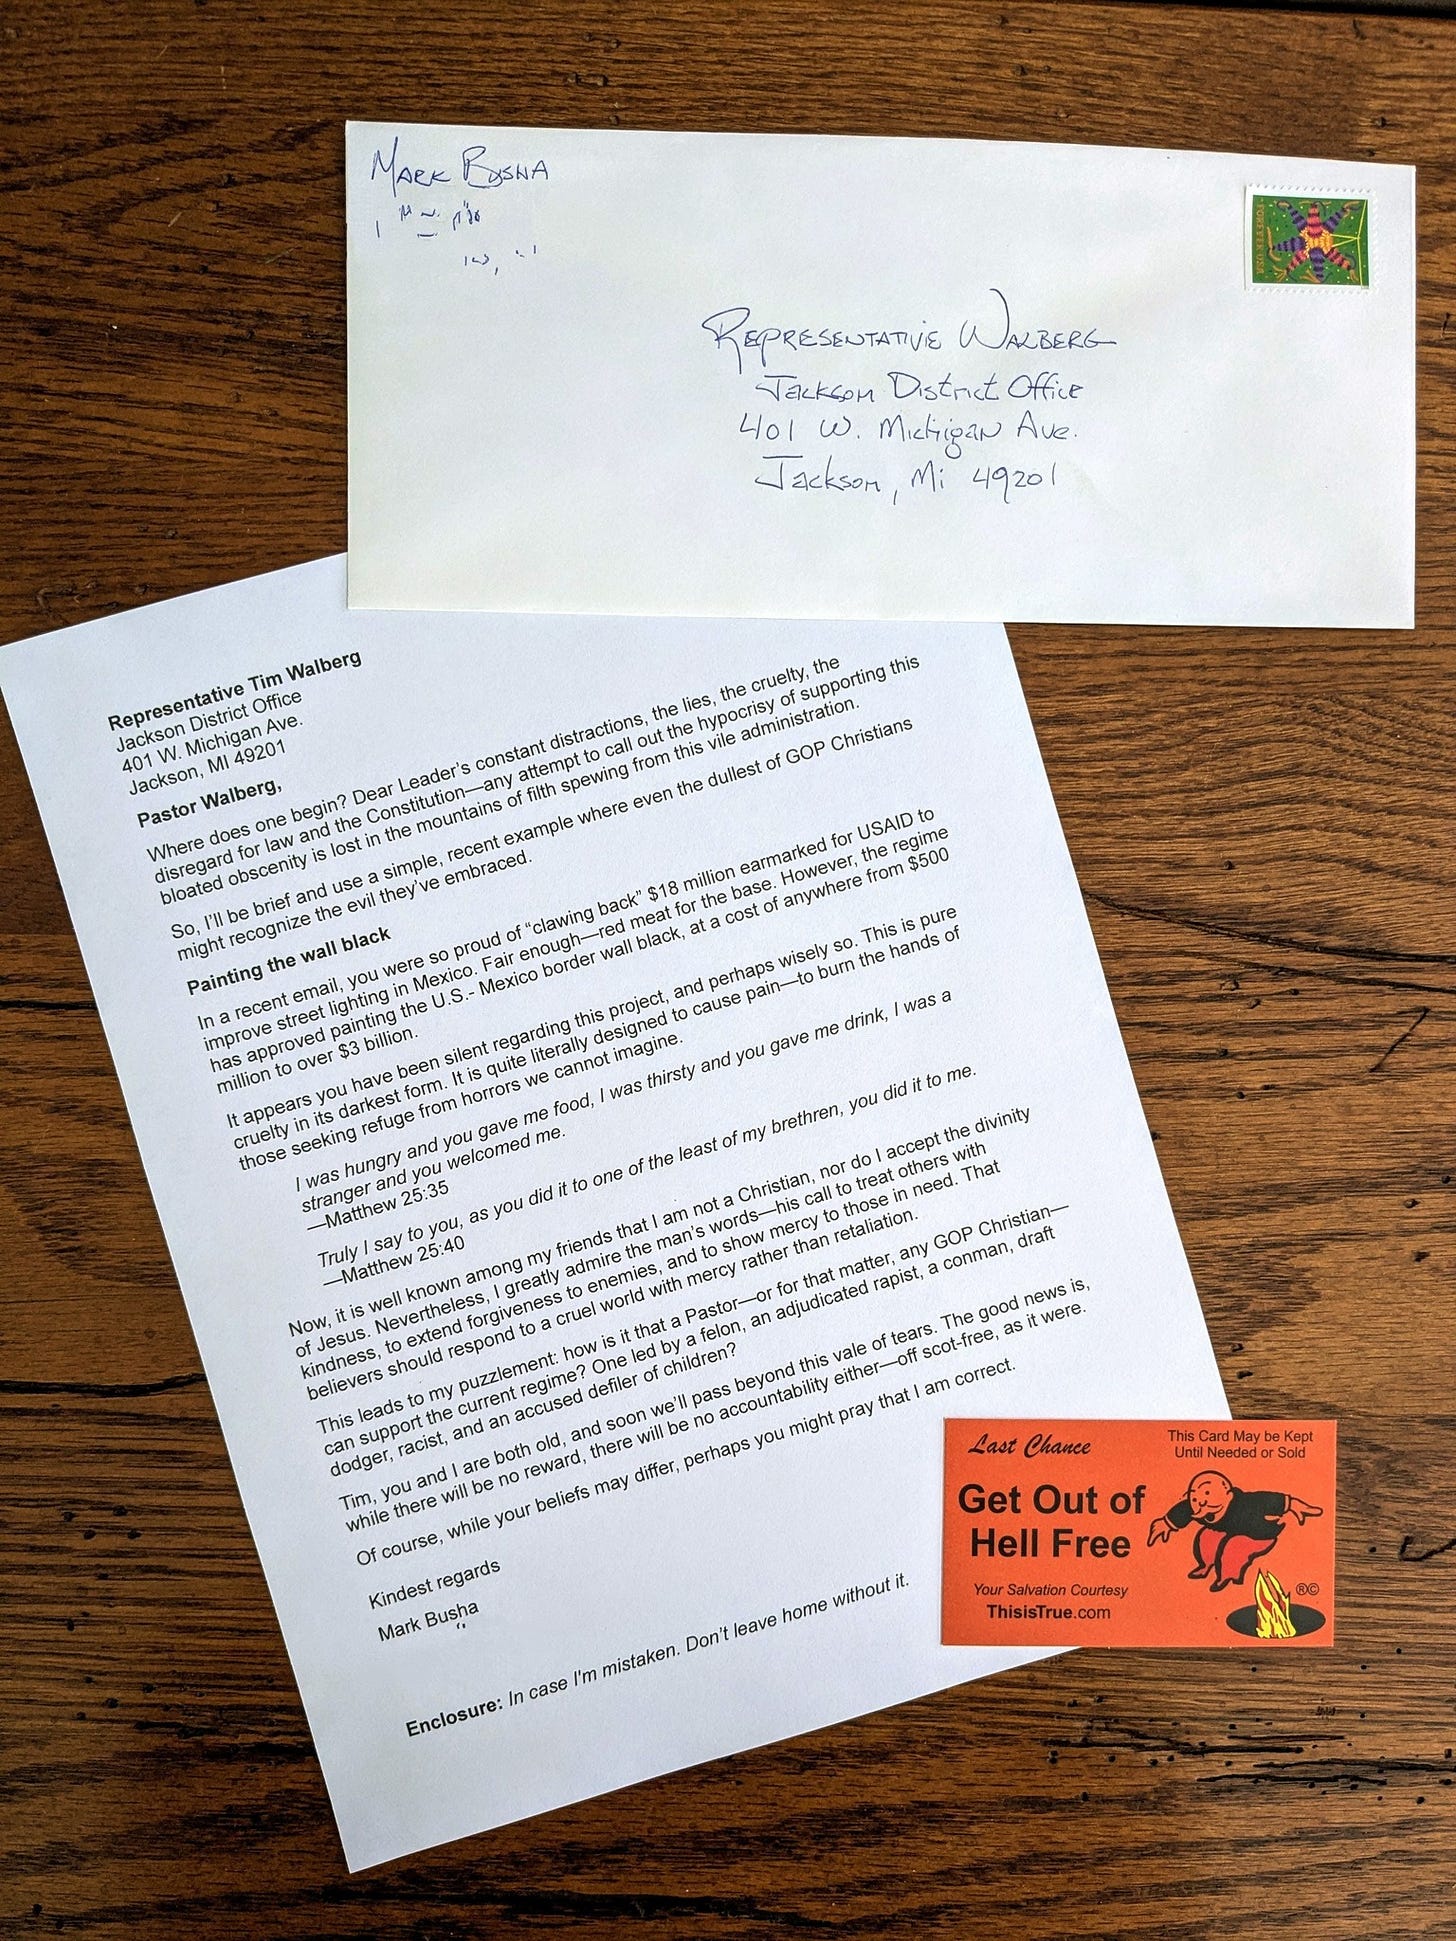 MARK BUSHA
FOREVER USA
REPRESENTATIVE WALBERG
Jackson District Office
401 W. Michigan Ave.
Jackson, Mi 49201
Representative Tim Walberg
Jackson District Office
401 W. Michigan Ave.
Jackson, MI 49201
Pastor Walberg,
Where does one begin? Dear Leader's constant distractions, the lies, the cruelty, the
disregard for law and the Constitution—any attempt to call out the hypocrisy of supporting this
bloated obscenity is lost in the mountains of filth spewing from this vile administration.
So, I'll be brief and use a simple, recent example where even the dullest of GOP Christians
might recognize the evil they've embraced.
Painting the wall black
In a recent email, you were so proud of "clawing back" $18 million earmarked for USAID to
improve street lighting in Mexico. Fair enough—red meat for the base. However, the regime
has approved painting the U.S.- Mexico border wall black, at a cost of anywhere from $500
million to over $3 billion.
It appears you have been silent regarding this project, and perhaps wisely so. This is pure
cruelty in its darkest form. It is quite literally designed to cause pain—to burn the hands of
those seeking refuge from horrors we cannot imagine.
I was hungry and you gave me food, I was thirsty and you gave me drink, I was a
stranger and you welcomed me.
—Matthew 25:35
Truly I say to you, as you did it to one of the least of my brethren, you did it to me.
—Matthew 25:40
Now, it is well known among my friends that I am not a Christian, nor do I accept the divinity
of Jesus. Nevertheless, I greatly admire the man's words—his call to treat others with
kindness, to extend forgiveness to enemies, and to show mercy to those in need. That
believers should respond to a cruel world with mercy rather than retaliation.
This leads to my puzzlement: how is it that a Pastor—or for that matter, any GOP Christian—
can support the current regime? One led by a felon, an adjudicated rapist, a conman, draft
dodger, racist, and an accused defiler of children?
Tim, you and I are both old, and soon we'll pass beyond this vale of tears. The good news is,
while there will be no reward, there will be no accountability either—off scot-free, as it were.
Of course, while your beliefs may differ, perhaps you might pray that I am correct.
Kindest regards
Mark Busha
Enclosure: In case I'm mistaken. Don't leave home without it.
Last Chance
This Card May be Kept
Until Needed or Sold
Get Out of
Hell Free
Your Salvation Courtesy
ThisisTrue.com
®©